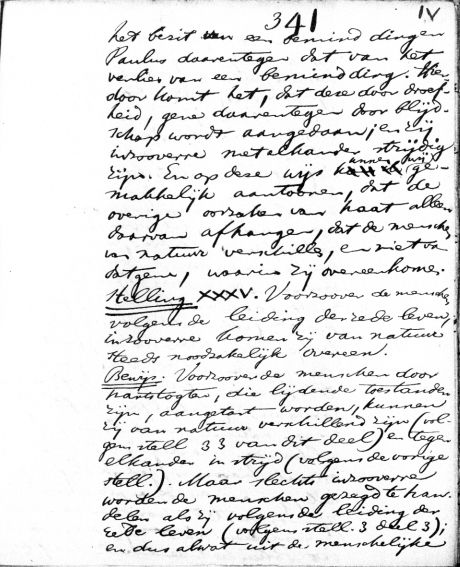 341
IV
het bezit van een bemind ding en
Paulus daarentegen dat van het
verlies van een bemind ding. Hier
door komt het, dat deze door droef-
heid, gene daarentegen door blijd-
schap wordt aangedaan; en zij
inzooverre met elkander strijdig
zijn. En op deze wijs kunnen wij ge-
makkelijk aantoonen, dat de
overige oorzaken van haat alleen
daarvan afhangen, dat de menschen
van natuur verschillen, en niet van
datgene, waarin zij overeenkomen.
Stelling XXXV. Voorzoover de menschen
volgens de leiding der rede leven,
inzooverre komen zij van natuur
steeds noodzakelijk overeen.
Bewijs. Voorzoover de menschen door
hartstogten, die lijdende toestanden
zijn, aangetast worden, kunnen
zij van natuur verschillend zijn (vol-
gens stell. 33 van dit deel) en tegen
elkander in strijd (volgens de vorige
stell.). Maar slechts inzooverre
worden de menschen gezegd te han-
delen als zij volgens de leiding der
rede leven (volgens stell. 3 deel 3);
en dus alwat uit de menschelijke